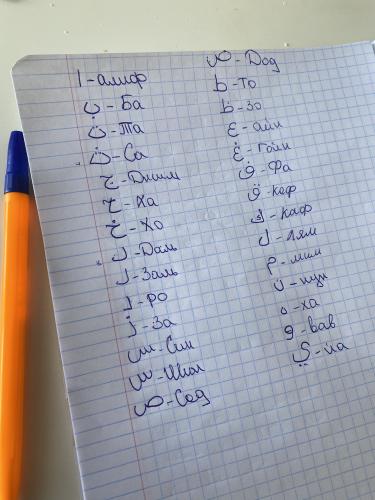 ا - алиф
ب - Ба
ت - Та
ث - Са
ج - Джим
ح - Ха
خ - Хо
د - Даль
ذ - Заль
ر - Ро
ز - За
س - Син
ش - Шин
ص - Сод
ض - Дод
ط - То
ظ - Зо
ع - айн
غ - Гойн
ف - Фа
ق - Коф
ك - Каф
ل - Лям
م - мим
ن - нун
ه - ха
و - вав
ي - йа